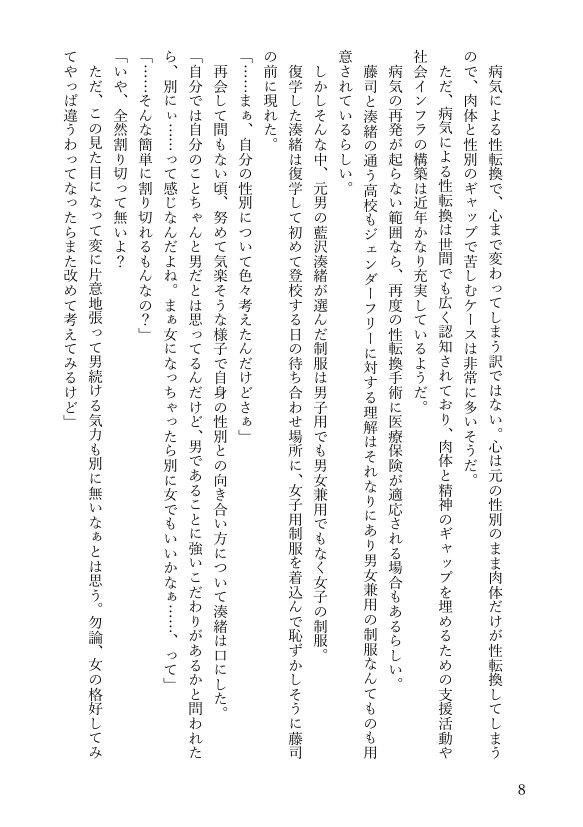 病気による性転換で、心まで変わってしまう訳ではない。心は元の性別のまま肉体だけが性転換してしまう
ので、肉体と性別のギャップで苦しむケースは非常に多いそうだ。
ただ、病気による性転換は世間でも広く認知されており、肉体と精神のギャップを埋めるための支援活動や
社会インフラの構築は近年かなり充実しているようだ。
病気の再発が起らない範囲なら、再度の性転換手術に医療保険が適応される場合もあるらしい。
藤司と湊緒の通う高校もジェンダーフリーに対する理解はそれなりにあり男女兼用の制服なんてものも用
意されているらしい。
しかしそんな中、元男の藍沢湊緒が選んだ制服は男子用でも男女兼用でもなく女子の制服。
復学した湊緒は復学して初めて登校する日の待ち合わせ場所に、女子用制服を着込んで恥ずかしそうに藤司
の前に現れた。
「……まぁ、自分の性別について色々考えたんだけどさぁ」
再会して間もない頃、努めて気楽そうな様子で自身の性別との向き合い方について湊緒は口にした。
「自分では自分のことちゃんと男だとは思ってるんだけど、男であることに強いこだわりがあるかと問われた
ら、別にぃ……って感じなんだよね。まぁ女になっちゃったら別に女でもいいかなぁ……、って」
「……そんな簡単に割り切れるもんなの？」
「いや、全然割り切って無いよ？
ただ、この見た目になって変に片意地張って男続ける気力も別に無いなぁとは思う。勿論、女の格好してみ
てやっぱ違うわってなったらまた改めて考えてみるけど」
8